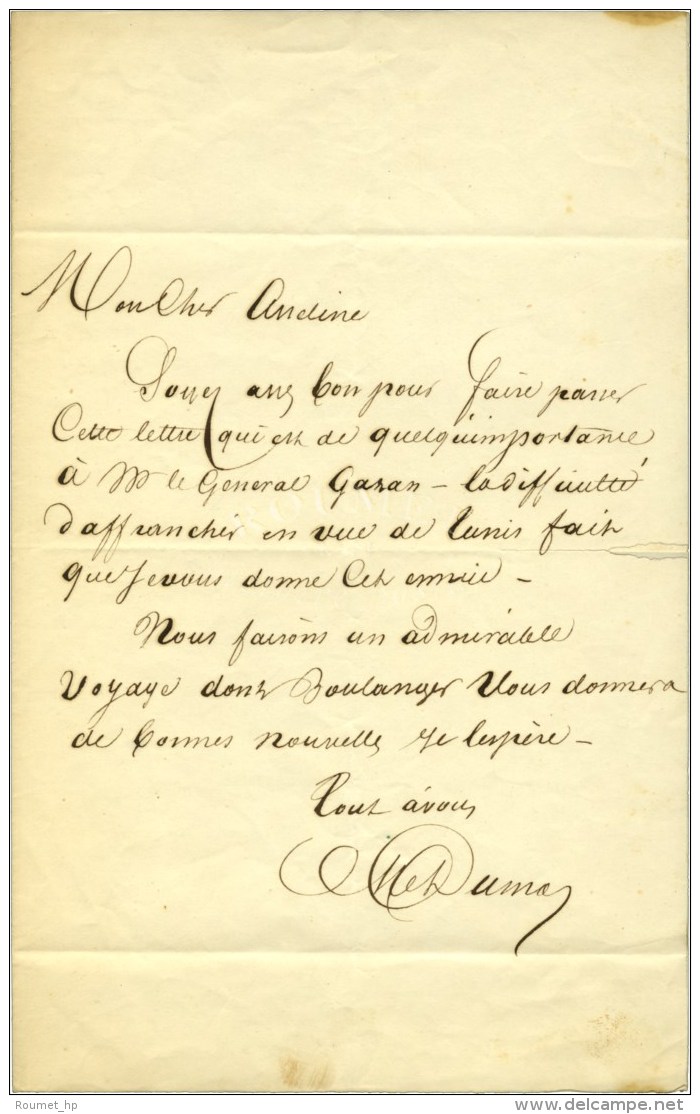 Mon Cher Andine
Soyez assez bon pour faire passer
Cette lettre qui est de quelqu'importance
à Mr le Général Gazan – la difficulté
d'affranchir en vue de Tunis fait
que Je vous donne Cet ennui –
Nous faisons un admirable
Voyage dont Boulanger Vous donnera
de bonnes nouvelles je l'espère –
Tout à vous
Alex Dumas
Roumet_hp
delcampe.net